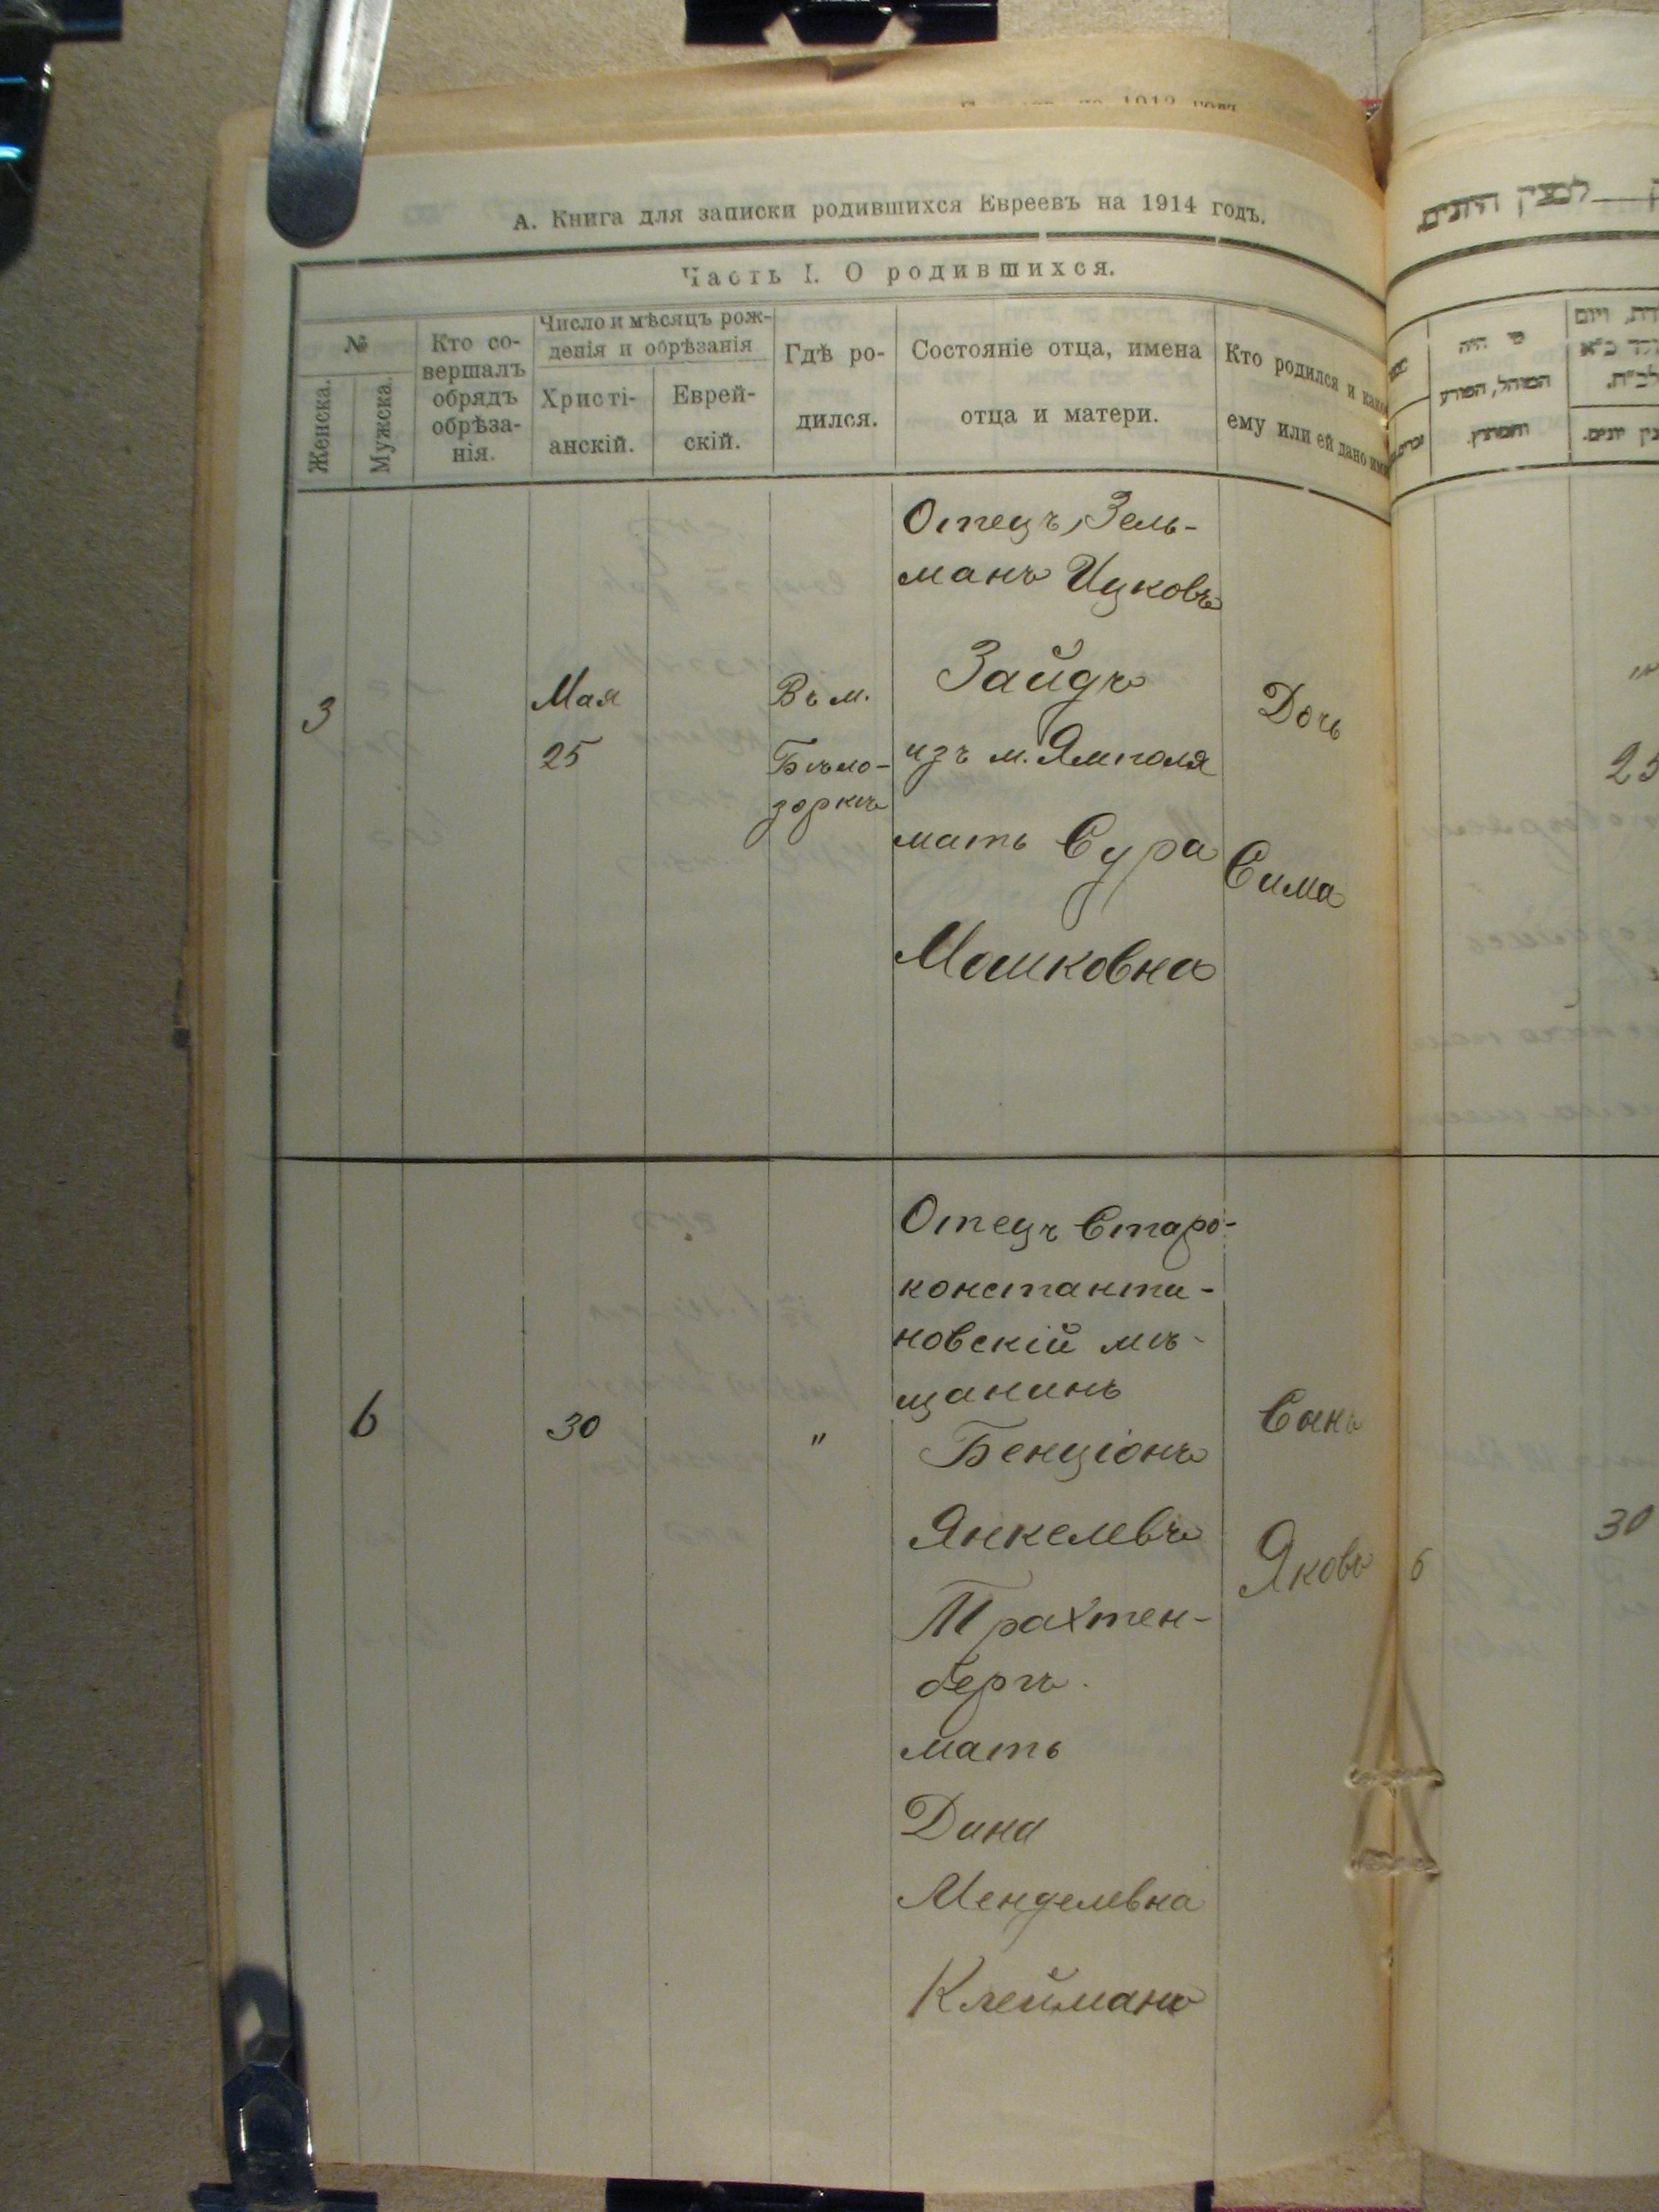 на 1913 годъ
А. Книга для записки родившихся Евреевъ на 1914 годъ.
Часть I. О родившихся.
№
Женска.
Мужска.
Кто со-
вершалъ
обрядъ
обрѣза-
нія.
Число и мѣсяцъ рож-
денія и обрѣзанія
Христі-
анскій.
Еврей-
скій.
Гдѣ ро-
дился.
Состояніе отца, имена
отца и матери.
Кто родился и какое
ему или ей дано имя
3
Мая
25
Въ м.
Бѣло-
зоркѣ
Отецъ, Зель-
манъ Ицковъ
Зайдъ
изъ м. Ямполя
мать Сура
Мошковна
Дочь
Сима
6
30
"
Отецъ Старо-
константи-
новскій мѣ-
щанинъ
Бенціонъ
Янкелевъ
Трахтен-
бергъ.
мать
Дина
Менделевна
Клейманъ
Сынъ
Яковъ
למנין היונים
מי היה
המוהל, הפורע
והמוצץ.
25
6
30